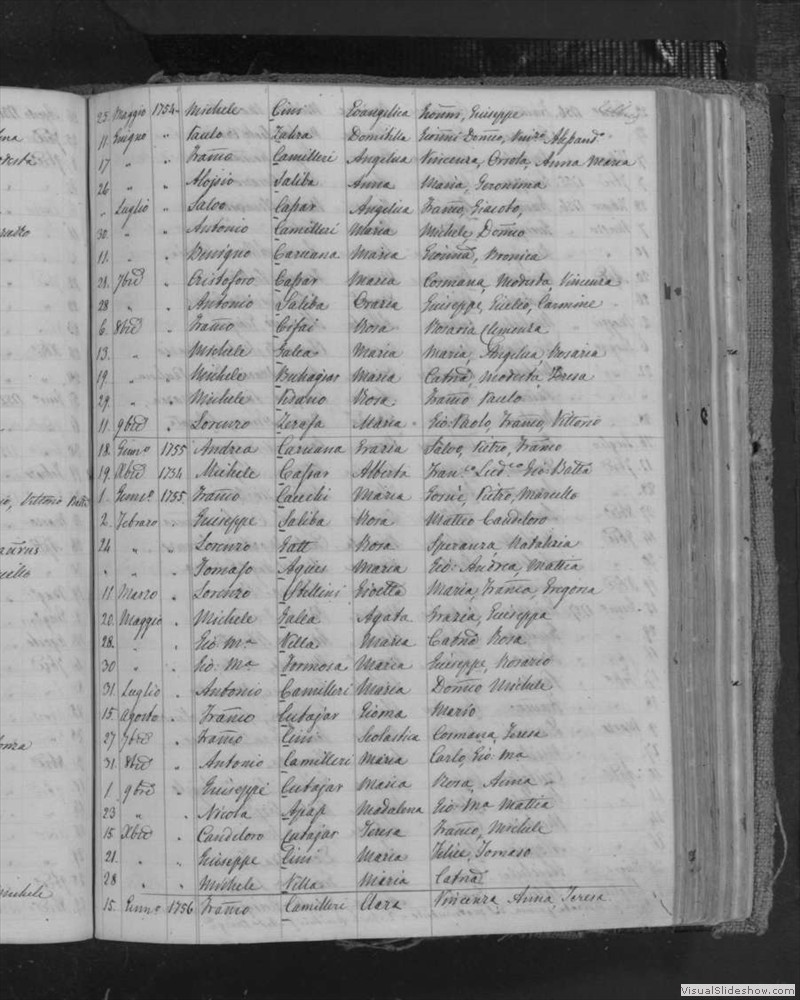 25 Maggio 1754 Michele Cini Evangelica Giuseppe
11 Giugno " Paulo Zahra Domitilla
17 " " Franco Camilleri Angelica Vincenza, Orsola, Anna Maria
26 " " Aloisio Saliba Anna Maria, Geronima
" Luglio " Salvo Caspar Angelica Franco, Giacobo,
30 " " Antonio Camilleri Maria Michele, Domco
11 " " Benigno Caruana Maria
21 7bre " Cristoforo Caspar Maria Cosmana, Modesta, Vincenza
28 " " Antonio Saliba Oraria Giuseppe, Carmine
6 8bre " Franco Cifai Rosa Rosaria Clemenza
13 " " Michele Galea Maria Maria, Angelica, Rosaria
19 " " Michele Buhagiar Maria Catna, Modesta, Teresa
29 " " Michele Rosa Franco Paulo
11 9bre " Lorenzo Zerafa Maria Gio: Paolo, Franco, Vittorio
18 Genno 1755 Andrea Caruana Grazia Salvo, Pietro, Franco
19 Xbre 1754 Michele Caspar Alberta Gio: Batta
1 Genno 1755 Franco Cauchi Maria Pietro, Marcello
2 Febraro " Giuseppe Saliba Rosa Matteo Candeloro
24 " " Lorenzo Gatt Rosa Speranza Natalizia
" " " Tomaso Agius Maria Gio: Andrea, Mattia
11 Marzo " Lorenzo Stellini Gioetta Maria, Franca, Gregoria
20 Maggio " Michele Galea Agata Grazia, Giuseppa
28 " " Gio: Ma Villa Maria Catna Rosa
30 " " Gio: Ma Formosa Maria Giuseppe, Rosario
31 Luglio " Antonio Camilleri Maria Domco Michele
15 Agosto " Franco Cutajar Gioma Mario
27 7bre " Franco Cini Scolastica Cosmana, Teresa
31 8bre " Antonio Camilleri Maria Carlo, Gio: Ma
1 9bre " Giuseppe Cutajar Maria Rosa, Anna
23 " " Nicola Apap Madalena Gio: Ma Mattia
15 Xbre " Candeloro Cutajar Teresa Franco, Michele
21 " " Giuseppe Cini Maria Felice, Tomaso
28 " " Michele Villa Maria Catna
15 Genno 1756 Franco Camilleri Clara Vincenza Anna, Teresa
VisualSlideshow.com